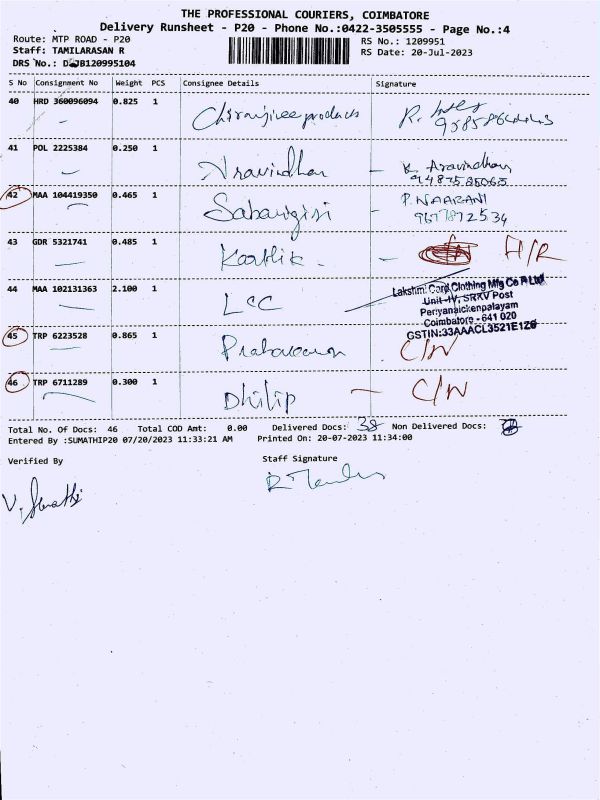 THE PROFESSIONAL COURIERS, COIMBATORE
Delivery Runsheet - P20 - Phone No.:0422-3505555 - Page No.:4
Route: MTP ROAD - P20 RS No.: 1209951
Staff: TAMILARASAN R RS Date: 20-Jul-2023
DRS No.: JB120995104
S No Consignment No Weight PCS Consignee Details Signature
40 HRD 360096094 0.825 1 Chiranjivee products R.
41 POL 2225384 0.250 1 Aravindhan - K. Aravindhan
42 MAA 104419350 0.465 1 Sabarigiri - P.
43 GDR 5321741 0.485 1 Karthik - H/R
44 MAA 102131363 2.100 1 LCC
Lakshmi Card Clothing Mfg Co P Ltd
Unit-IV, SRKV Post
Periyanaickenpalayam
Coimbatore - 641 020
GSTIN:33AAACL3521E1Z6
45 TRP 6223528 0.865 1 C/N
46 TRP 6711289 0.300 1 Dhilip - C/N
Total No. Of Docs: 46 Total COD Amt: 0.00 Delivered Docs: 38 Non Delivered Docs:
Entered By :SUMATHIP20 07/20/2023 11:33:21 AM Printed On: 20-07-2023 11:34:00
Verified By Staff Signature
V. Sumathi